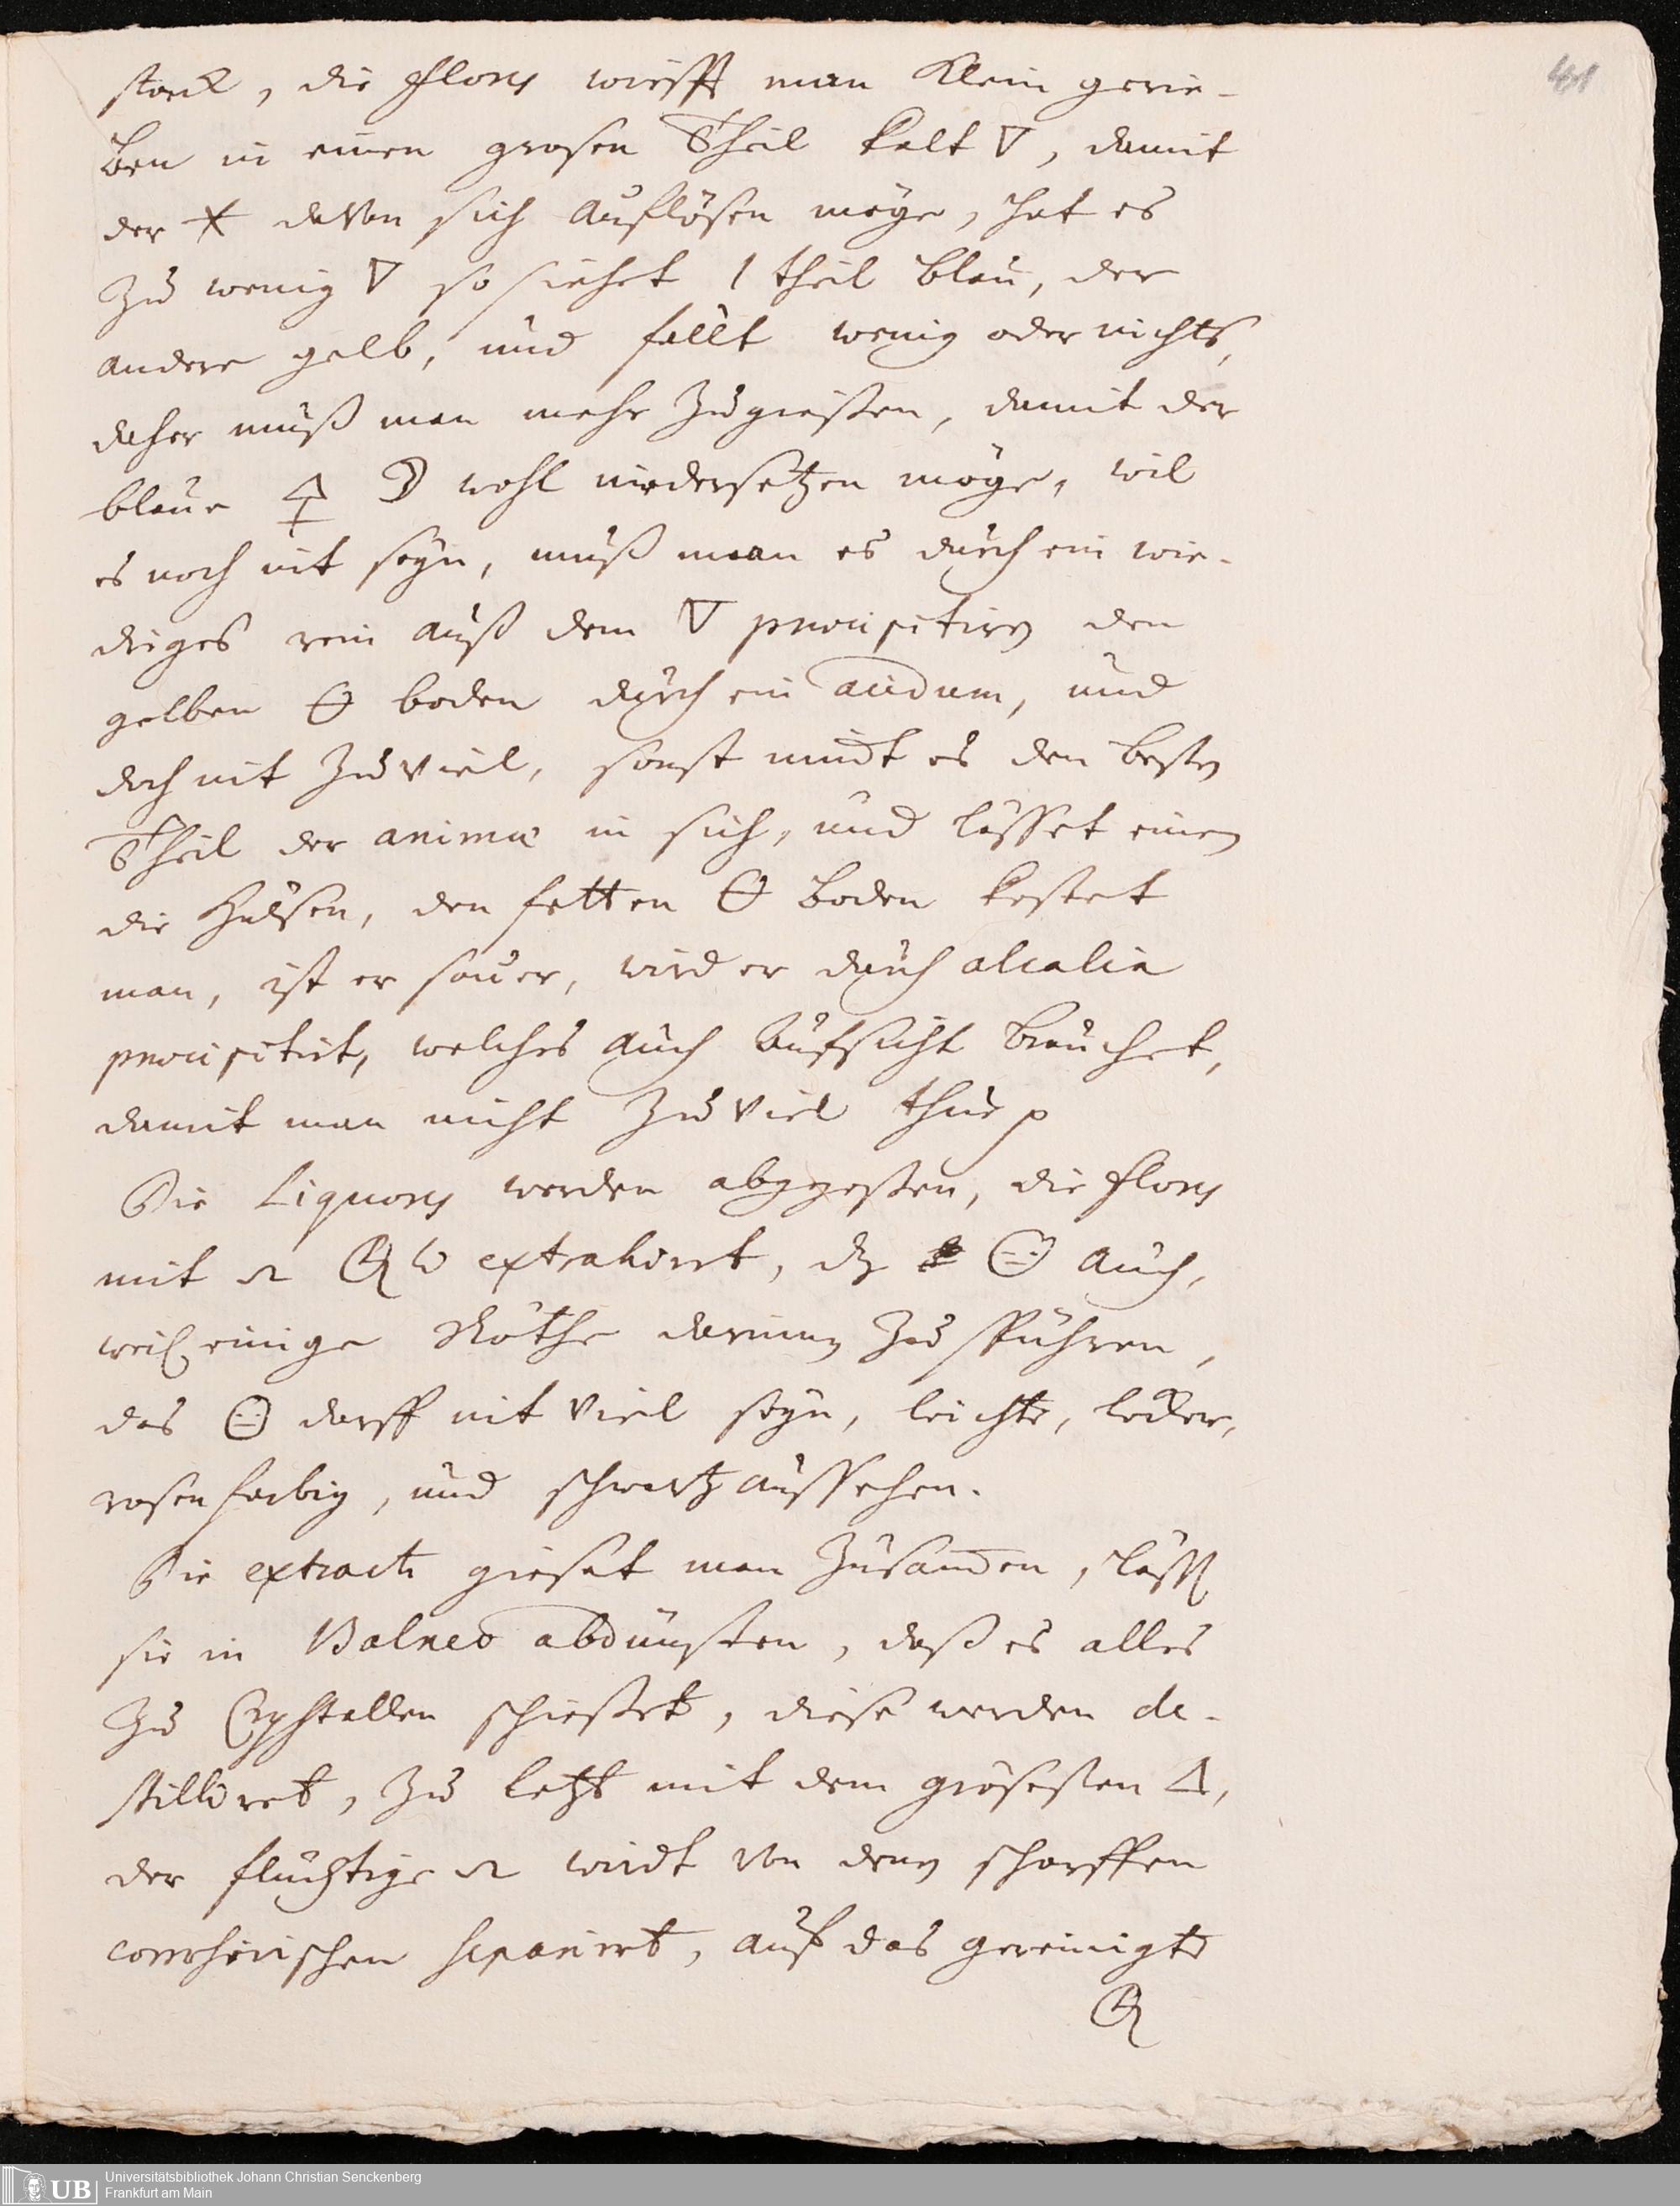 starck, die Flores wirfft man Klein gerie-
ben in einen grosen Theil kalt 🜄, damit
der 🞶 davon sich auflösen möge, hat es
Zu wenig 🜄 so siehet 1 theil blau, der
andere gelb, und fällt wenig oder nichts,
daher muß man mehr Zugießen, damit der
blaue 🜍 ☽ wohl niedersetzen möge, wil
es noch nit seyn, muß man es durch ein wie-
driges rein auß dem 🜄 praecipitiren den
gelben boden durch ein acidum, und
doch nit Zu viel, sonst nimt es den besten
Theil der animae in sich, und lässet einen
die Hülsen, den fetten boden kostet
man, ist er sauer, wird er durch alcalia
praecipitirt, welches auch Aufsicht brauchet,
damit man nicht Zu viel thue p
Die Liquores werden abgegossen, die flores
mit extrahirt, dz auch,
weil einige Röthe darinnen Zu spühren,
das darff nit viel seyn, leichte, locker,
rosenfarbig, und schwartz aussehen.
Die extracte gieset man Zusammen, lässt
sie in Balneo abdünsten, daß es alles
Zu Crystallen schießet, diese werden de-
stilliret, Zu letzt mit dem grösesten 🜂,
der flüchtige wirdt von dem scharffen
corrosivischen separiret, auf das gereinigte
41
UB Universitätsbibliothek Johann Christian Senckenberg
Frankfurt am Main